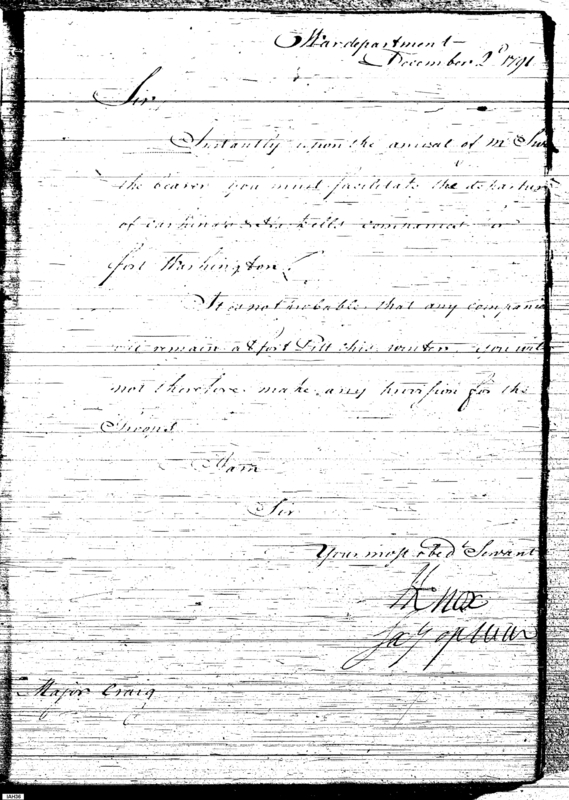 War department
December 2d 1791
Sir,
Instantly upon the arrival of Mr
the bearer you must facilitate the departure
of companies
fort Washington.
It is not probable that any companies
remain at fort Pitt this winter you will
not therefore make any provision for the
Troops
I am
Sir
Your most obedt Servant
HKnox
Secy of War
Major Craig
IAH36